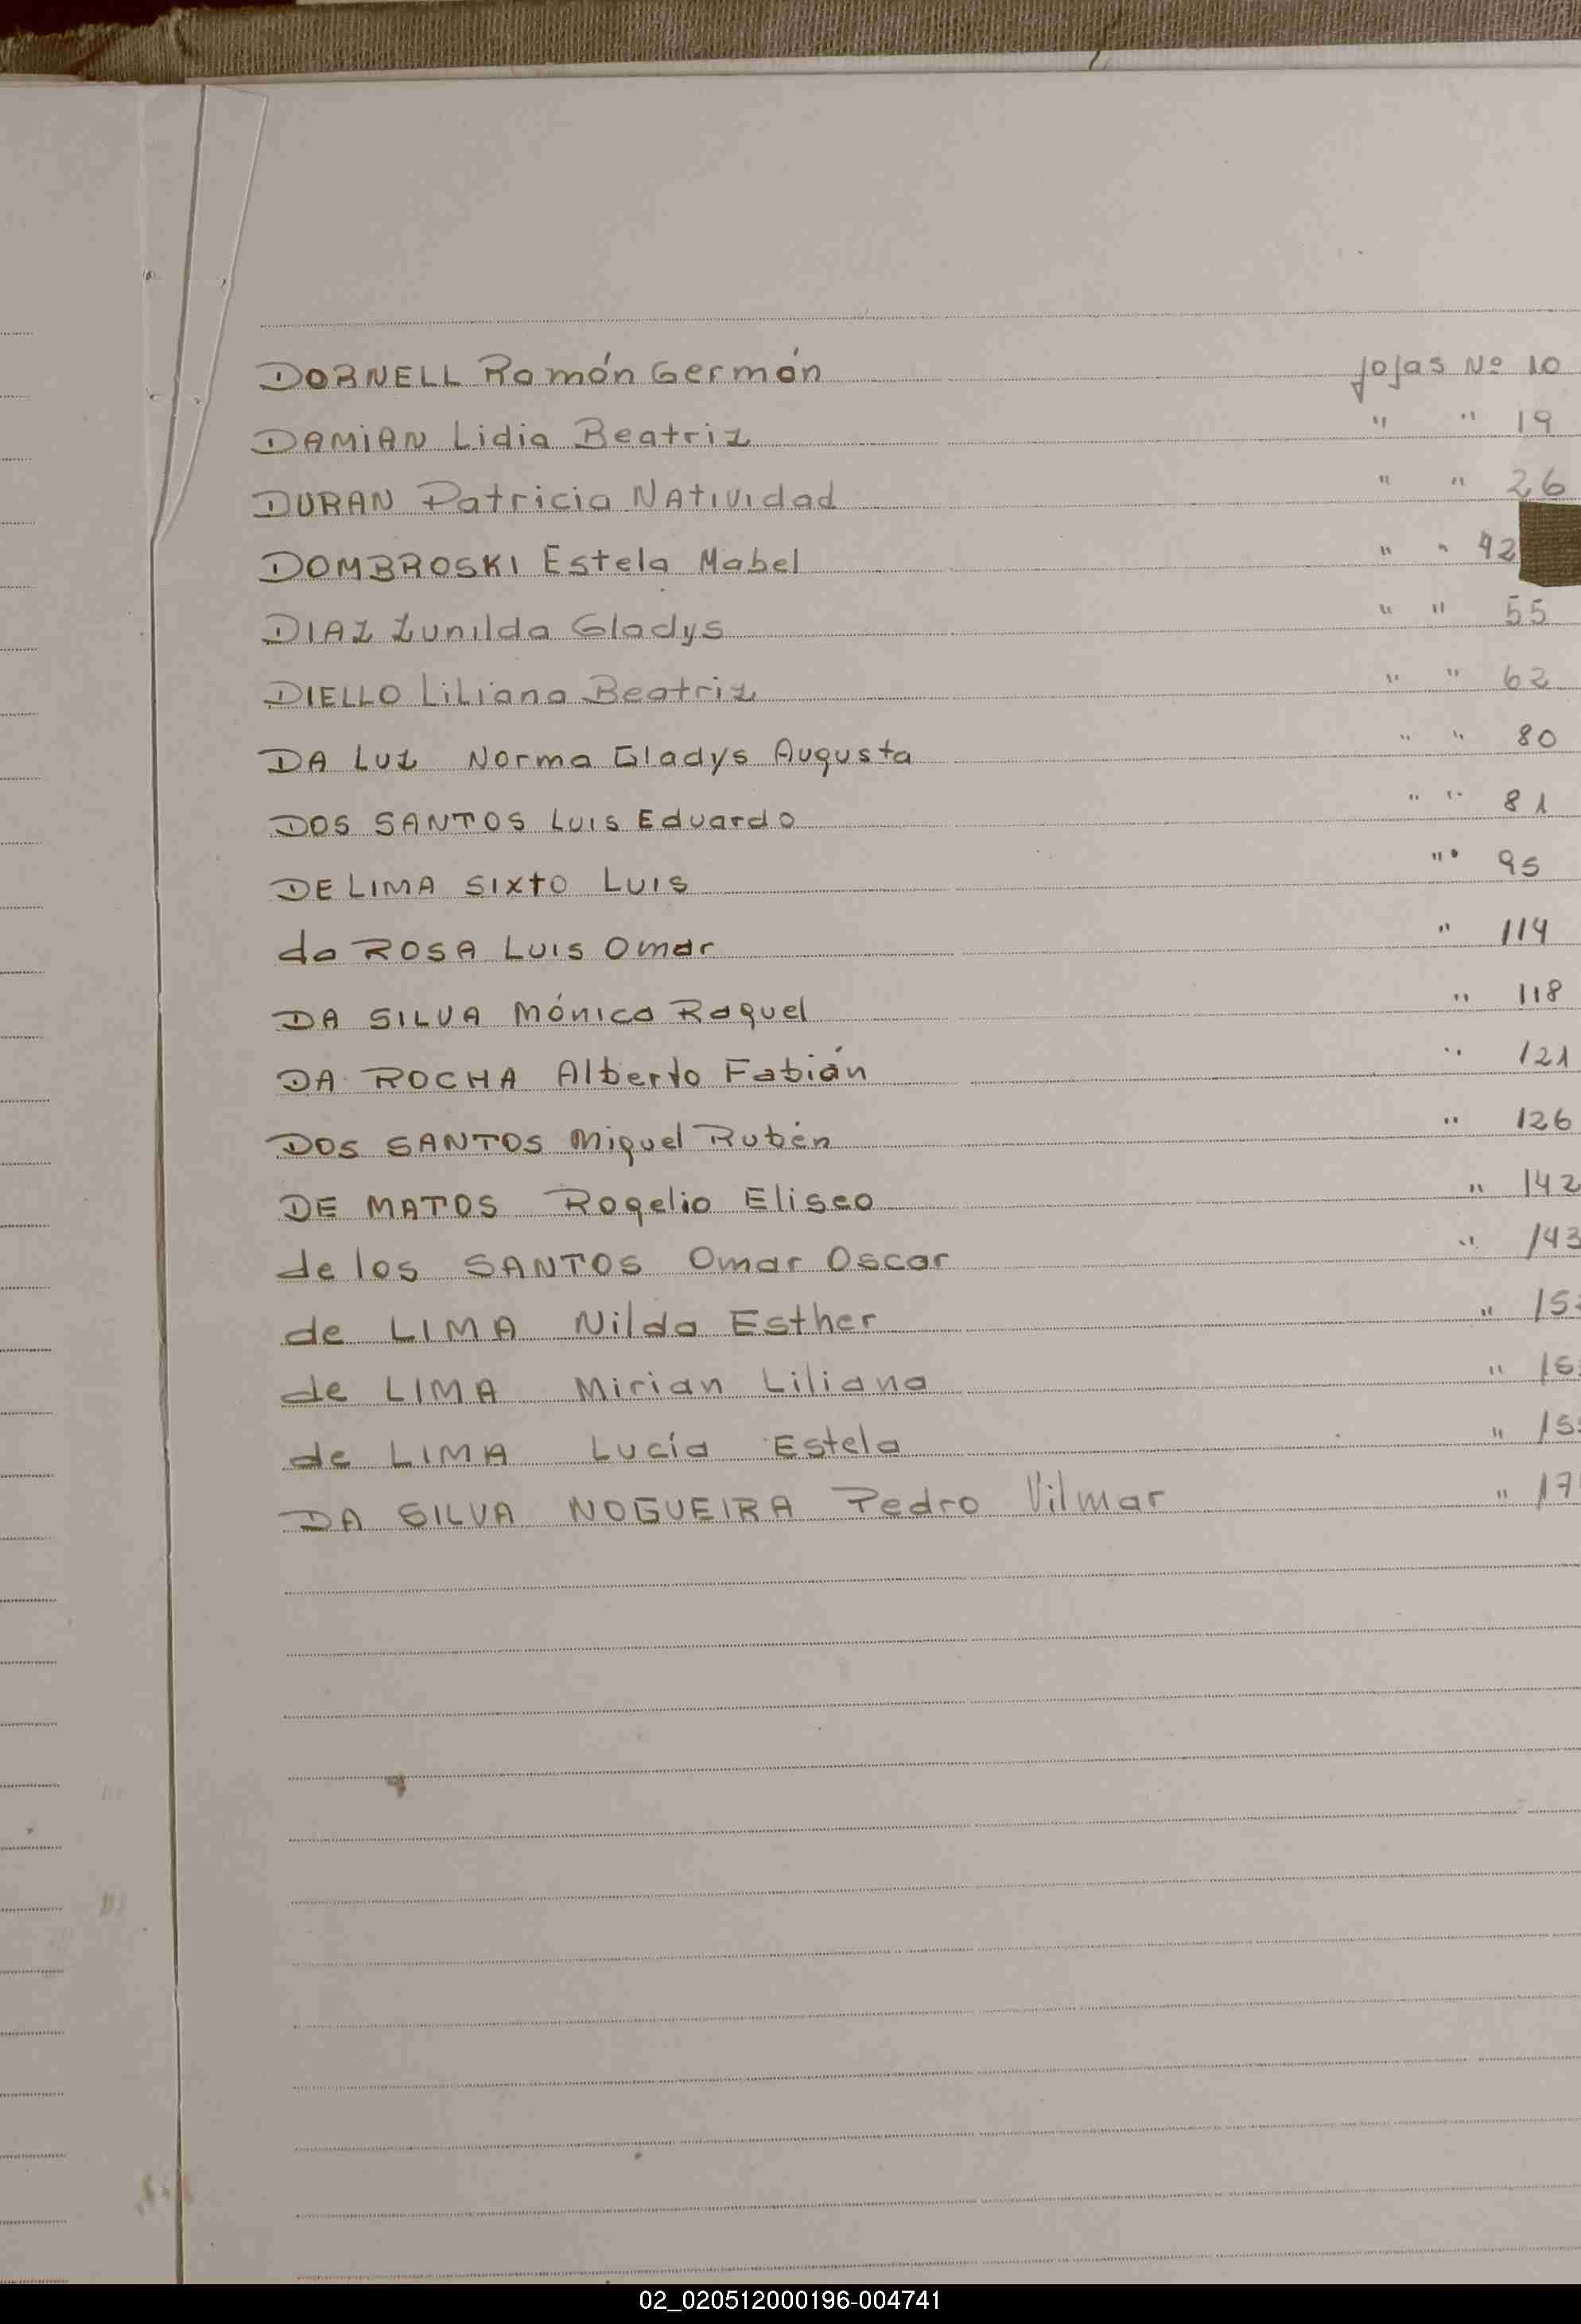 DORNELL Ramón Germán fojas Nº 10
DAMIAN Lidia Beatriz " " 19
DURAN Patricia NAtividad " " 26
DOMBROSKI Estela Mabel " " 42
DIAZ Zunilda Gladys " " 55
DIELLO Liliana Beatriz " " 62
DA LUZ Norma Gladys Augusta " " 80
DOS SANTOS Luis Eduardo " " 81
DE LIMA Sixto Luis " " 95
da ROSA Luis Omar " 114
DA SILVA Mónica Raquel " 118
DA ROCHA Alberto Fabián " 121
DOS SANTOS Miguel Rubén " 126
DE MATOS Rogelio Eliseo " 142
de los SANTOS Omar Oscar " 143
de LIMA Nilda Esther "
de LIMA Mirian Liliana "
de LIMA Lucía Estela "
DA SILVA NOGUEIRA Pedro Vilmar "
02_020512000196-004741